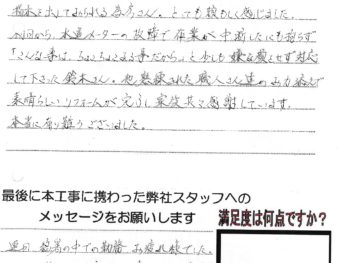 出してあられる さん。とても頼もしく感じました。
から、水道メーターの故障で作業が中断したにも拘らず
「こんな事は、ちょこちょこある事だから。」と少しも嫌な顔もせず対応
して下さった鈴木さん。他熟練された職人さん達のお力添えで
素晴らしいリフォームが完了し家族共々感謝しています。
本当に有り難うございました。
最後に本工事に携わった弊社スタッフへの
メッセージをお願いします
満足度は何点ですか?
連日 猛暑の中での勤務 お疲れ様でした。